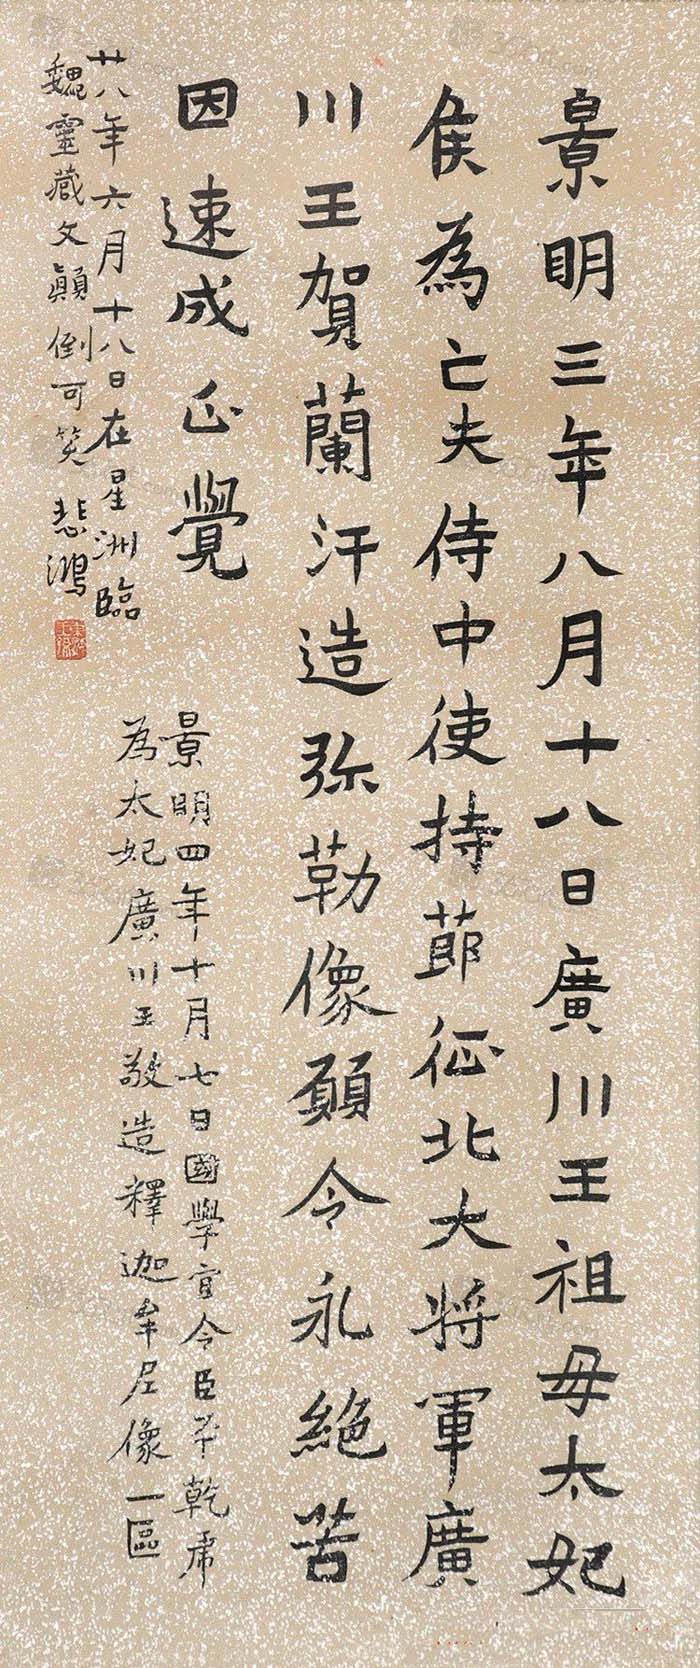 景明三年八月十八日廣川王祖母太妃
侯為亡夫侍中使持莭征北大將軍廣
川王賀蘭汗造弥勒像願令永絕苦
因速成正覺
景明四年十月七日國學官令臣平乾虎
為太妃廣川王敬造釋迦牟尼像一區
廿八年六月十八日在星洲臨
魏靈藏文顛倒可笑悲鴻